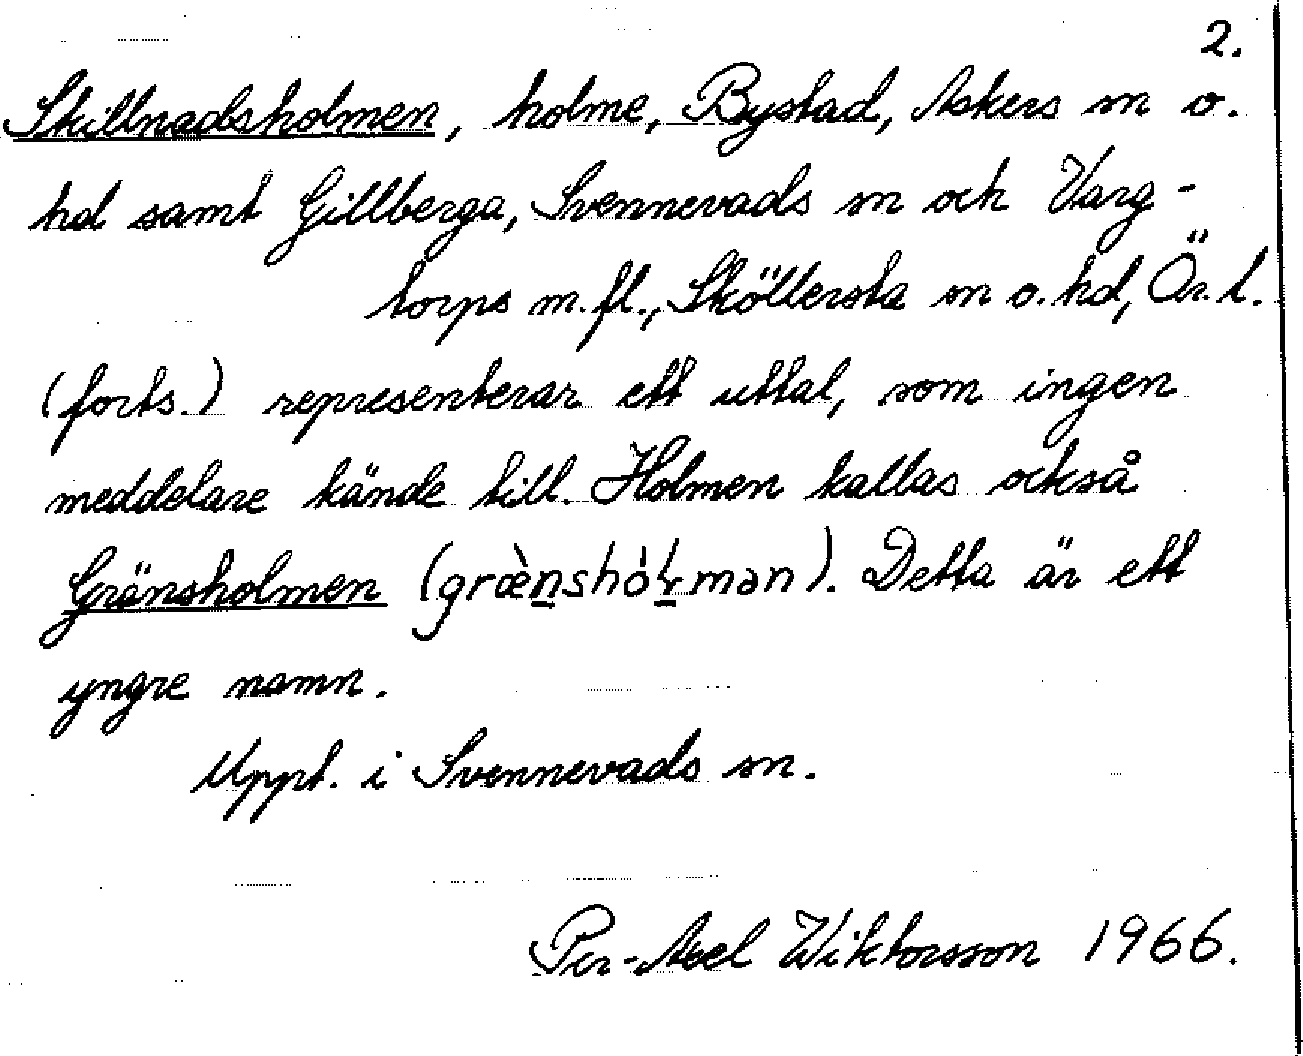 2.
Skillnadsholmen, holme, Bystad, Askers sn o.
hd samt Gillberga, Svennevads sn och Varg-
torps m.fl., Sköllersta sn o. hd, Är. l.
(forts.) representerar ett uttal, som ingen
meddelare kände till. Holmen kallas också
Gränsholmen (græ̀nshó). Detta är ett
yngre namn.
Uppt. i Svennevads sn.
Per-Axel Wiktorsson 1966.